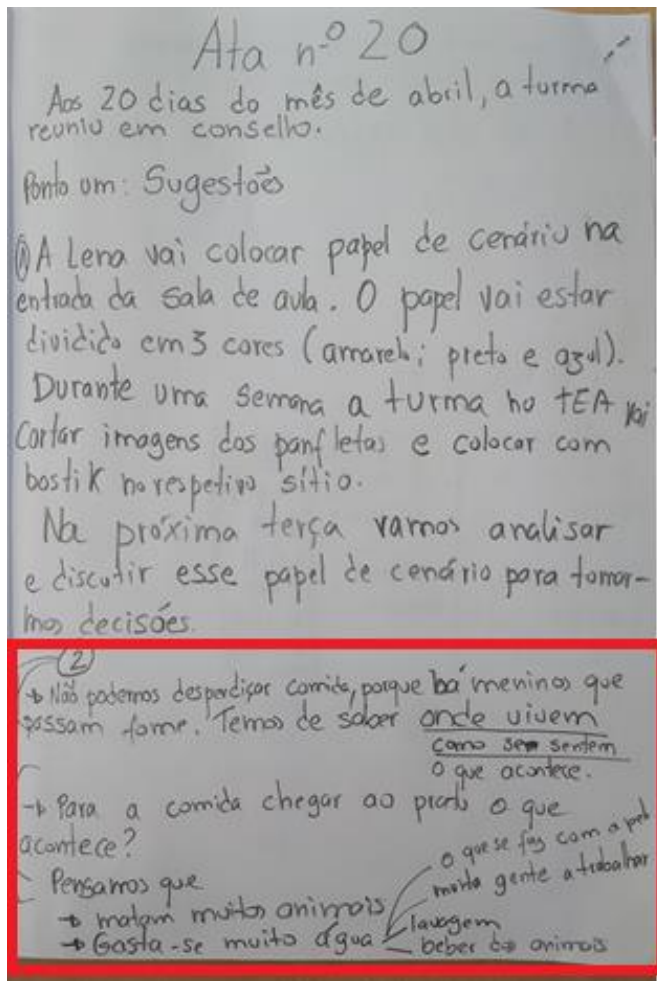 Ata nº 20
Aos 20 dias do mês de abril, a turma
reuniu em conselho.
Ponto um: Sugestões
① A Lena vai colocar papel de cenário na
entrada da sala de aula. O papel vai estar
dividido em 3 cores (amarelo; preto e azul).
Durante uma semana a turma no TEA vai
cortar imagens dos panfletos e colocar com
bostik no respetivo sítio.
Na próxima terça vamos analisar
e discutir esse papel de cenário para tomar-
mos decisões.
②
→ Não podemos desperdiçar comida, porque há meninos que
passam fome. Temos de saber onde vivem
como se sentem
o que acontece.
→ Para a comida chegar ao prato o que
acontece?
Pensamos que
→ matam muitos animais
→ Gasta-se muito água
o que se faz com a pel
muita gente a trabalhar
lavagem
beber dos animais